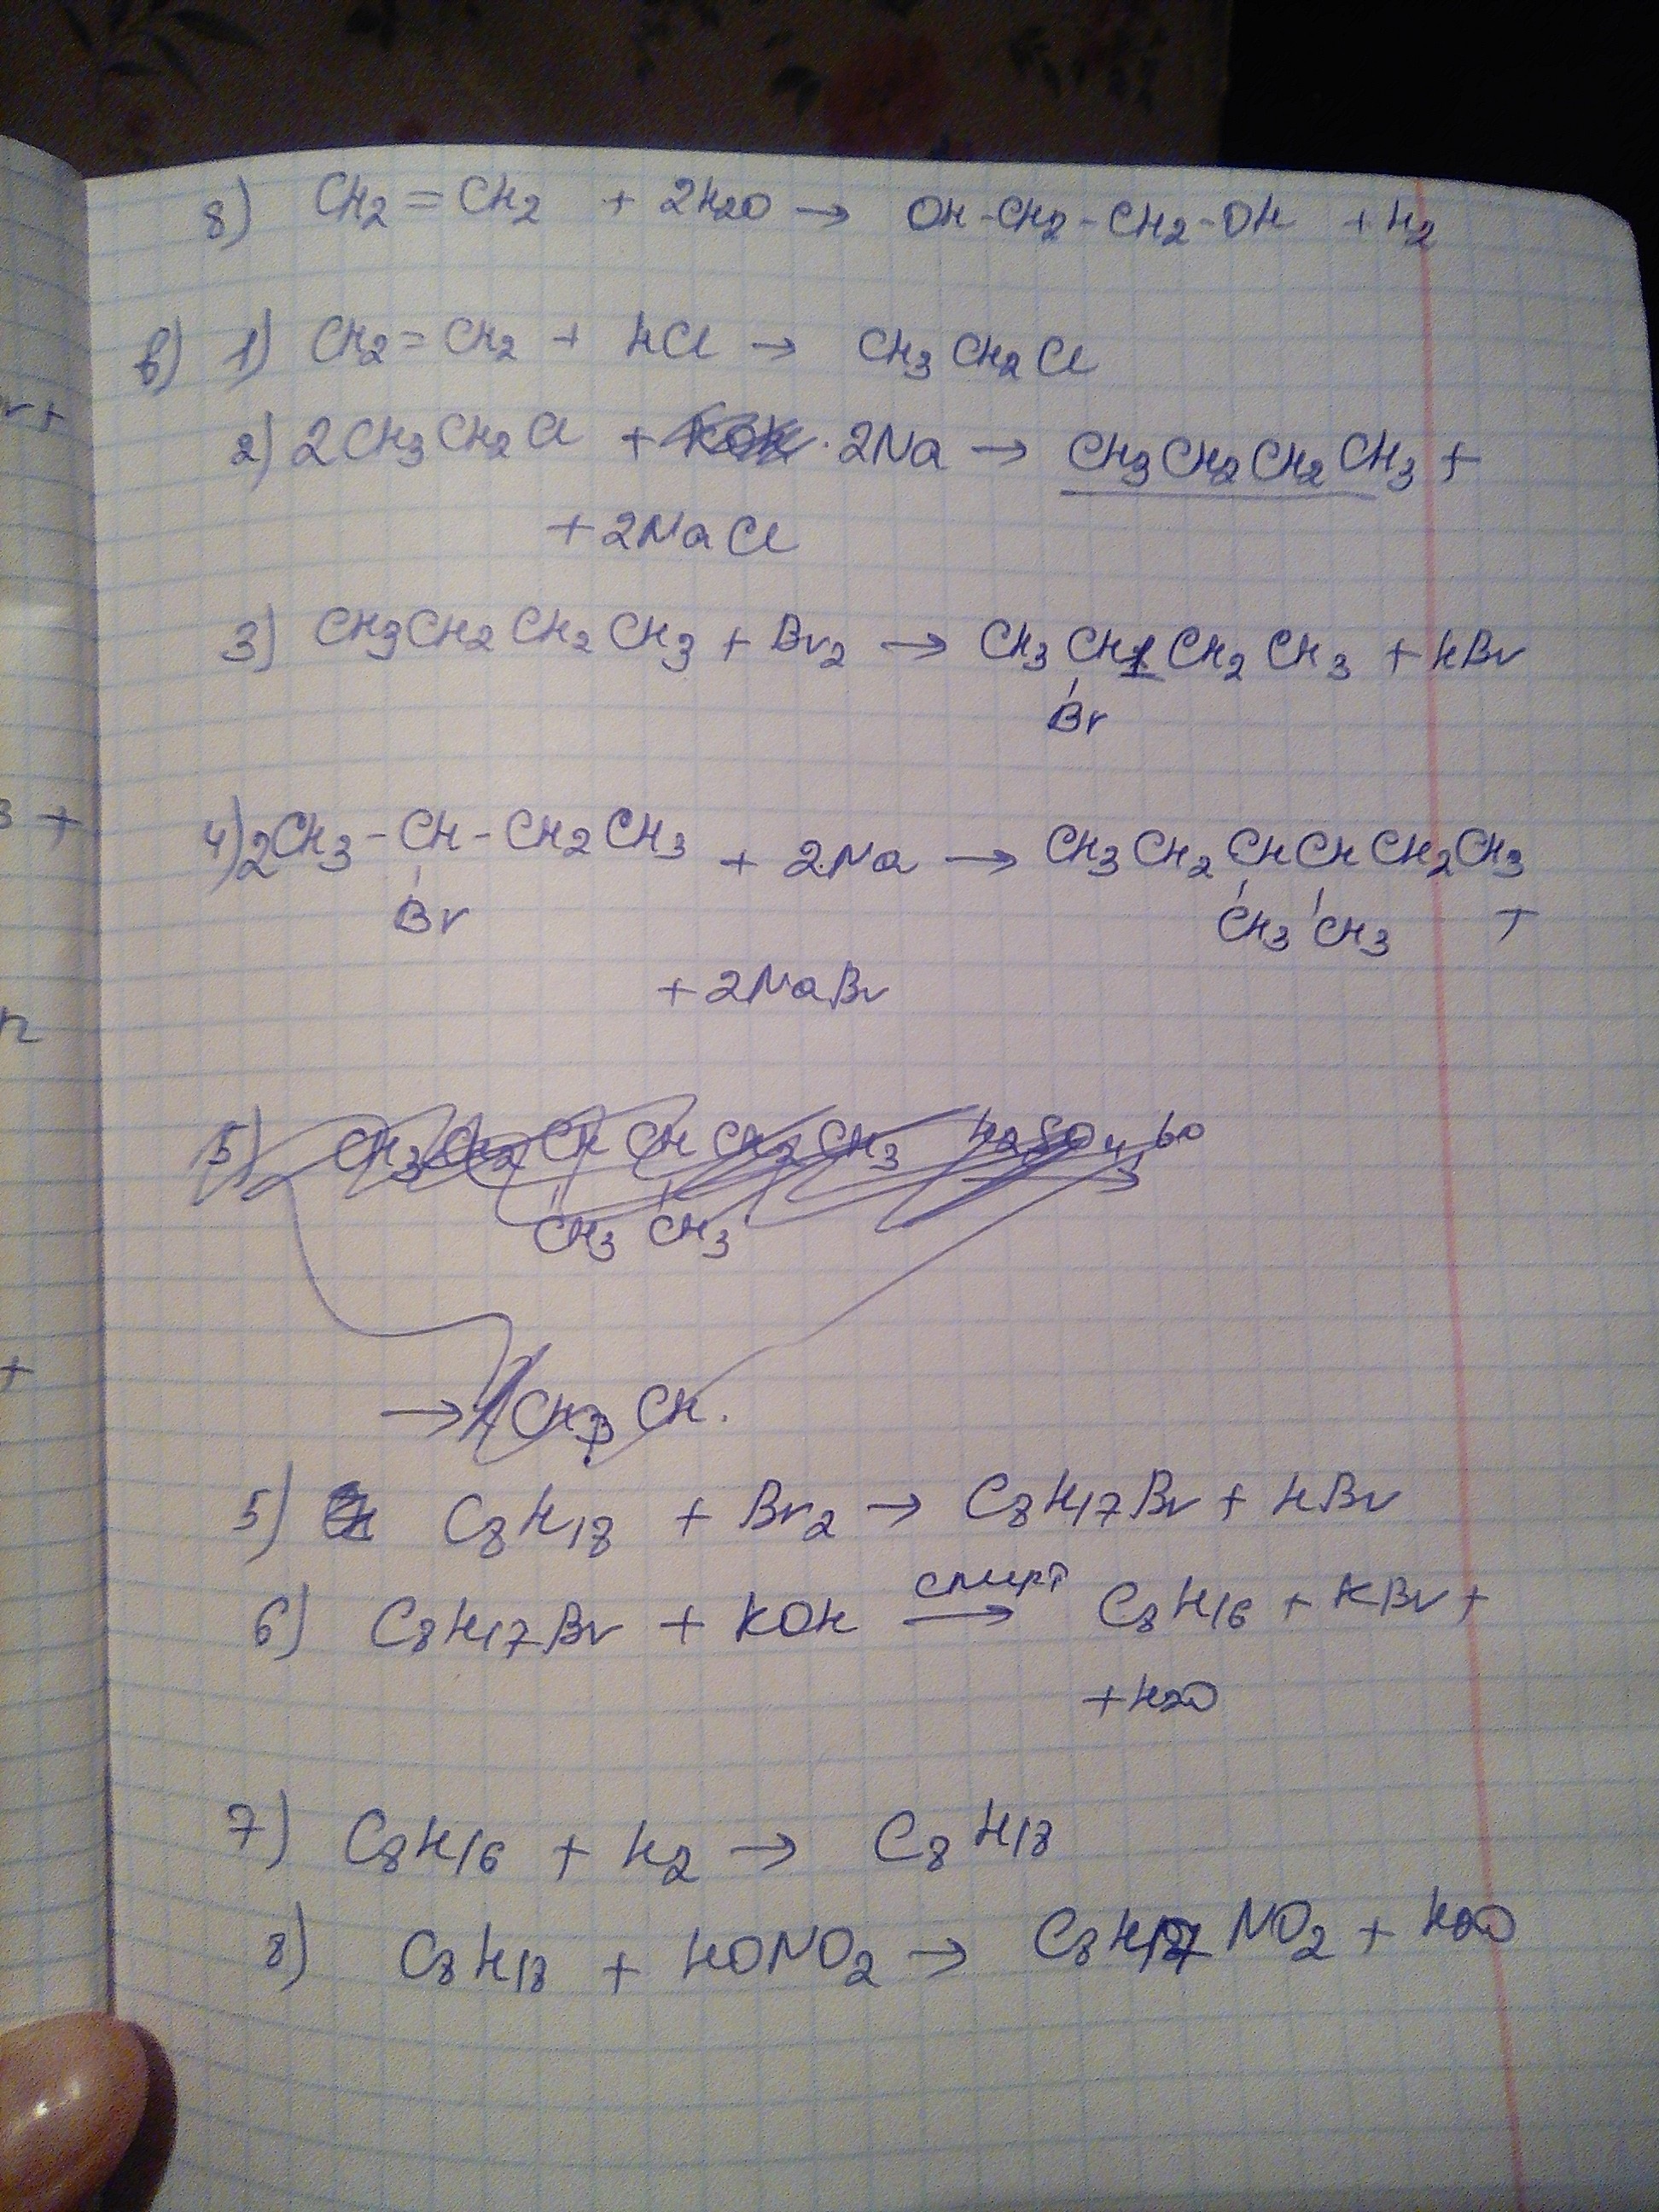 8) CH2=CH2 + 2H2O → OH-CH2-CH2-OH + H2
в) 1) CH2=CH2 + HCl → CH3CH2Cl
2) 2CH3CH2Cl + 2Na → CH3CH2CH2CH3 +
+ 2NaCl
3) CH3CH2CH2CH3 + Br2 → CH3CHCH2CH3 + HBr
Br
4) 2CH3-CH-CH2CH3 + 2Na → CH3CH2CHCHCH2CH3
Br CH3 CH3 +
+ 2NaBr
5) CH3CH2CHCHCH2CH3 H2SO4 →
CH3 CH3
→ CH3 CH.
5) C8H18 + Br2 → C8H17Br + HBr
6) C8H17Br + KOH спирт → C8H16 + KBr +
+ H2O
7) C8H16 + H2 → C8H18
8) C8H18 + HONO2 → C8H17NO2 + H2O